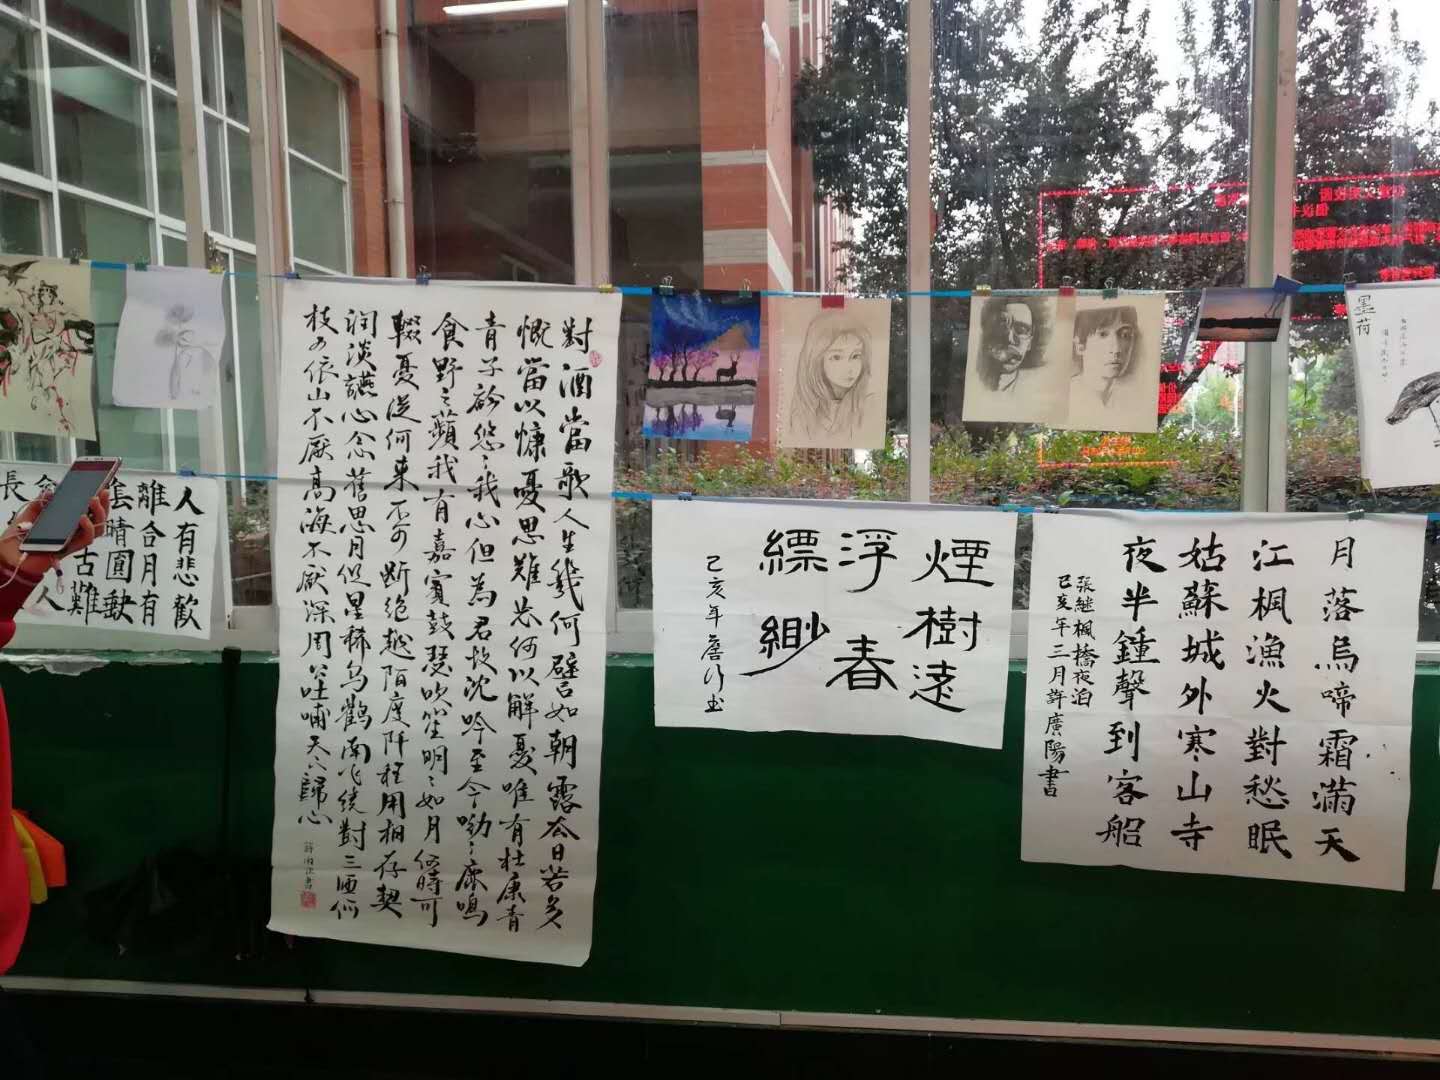 人有悲歡
離合月有
晴圓缺
古難
人
長
對酒當歌人生幾何譬如朝露去日苦多
慨當以慷憂思難忘何以解憂唯有杜康青
青子衿悠〻我心但為君故沈吟至今呦〻鹿鳴
食野之蘋我有嘉賓鼓瑟吹笙明〻如月何時可
輟憂從何来不可斷絕越陌度阡枉用相存契
闊淡讌心念舊恩月明星稀烏鵲南飛繞樹三匝何
枝可依山不厭高海不厭深周公吐哺天下歸心
煙樹遠
浮春
縹緲
己亥年
月落烏啼霜滿天
江楓漁火對愁眠
姑蘇城外寒山寺
夜半鍾聲到客船
張継楓橋夜泊
己亥年三月許廣陽書
墨荷
倡议书